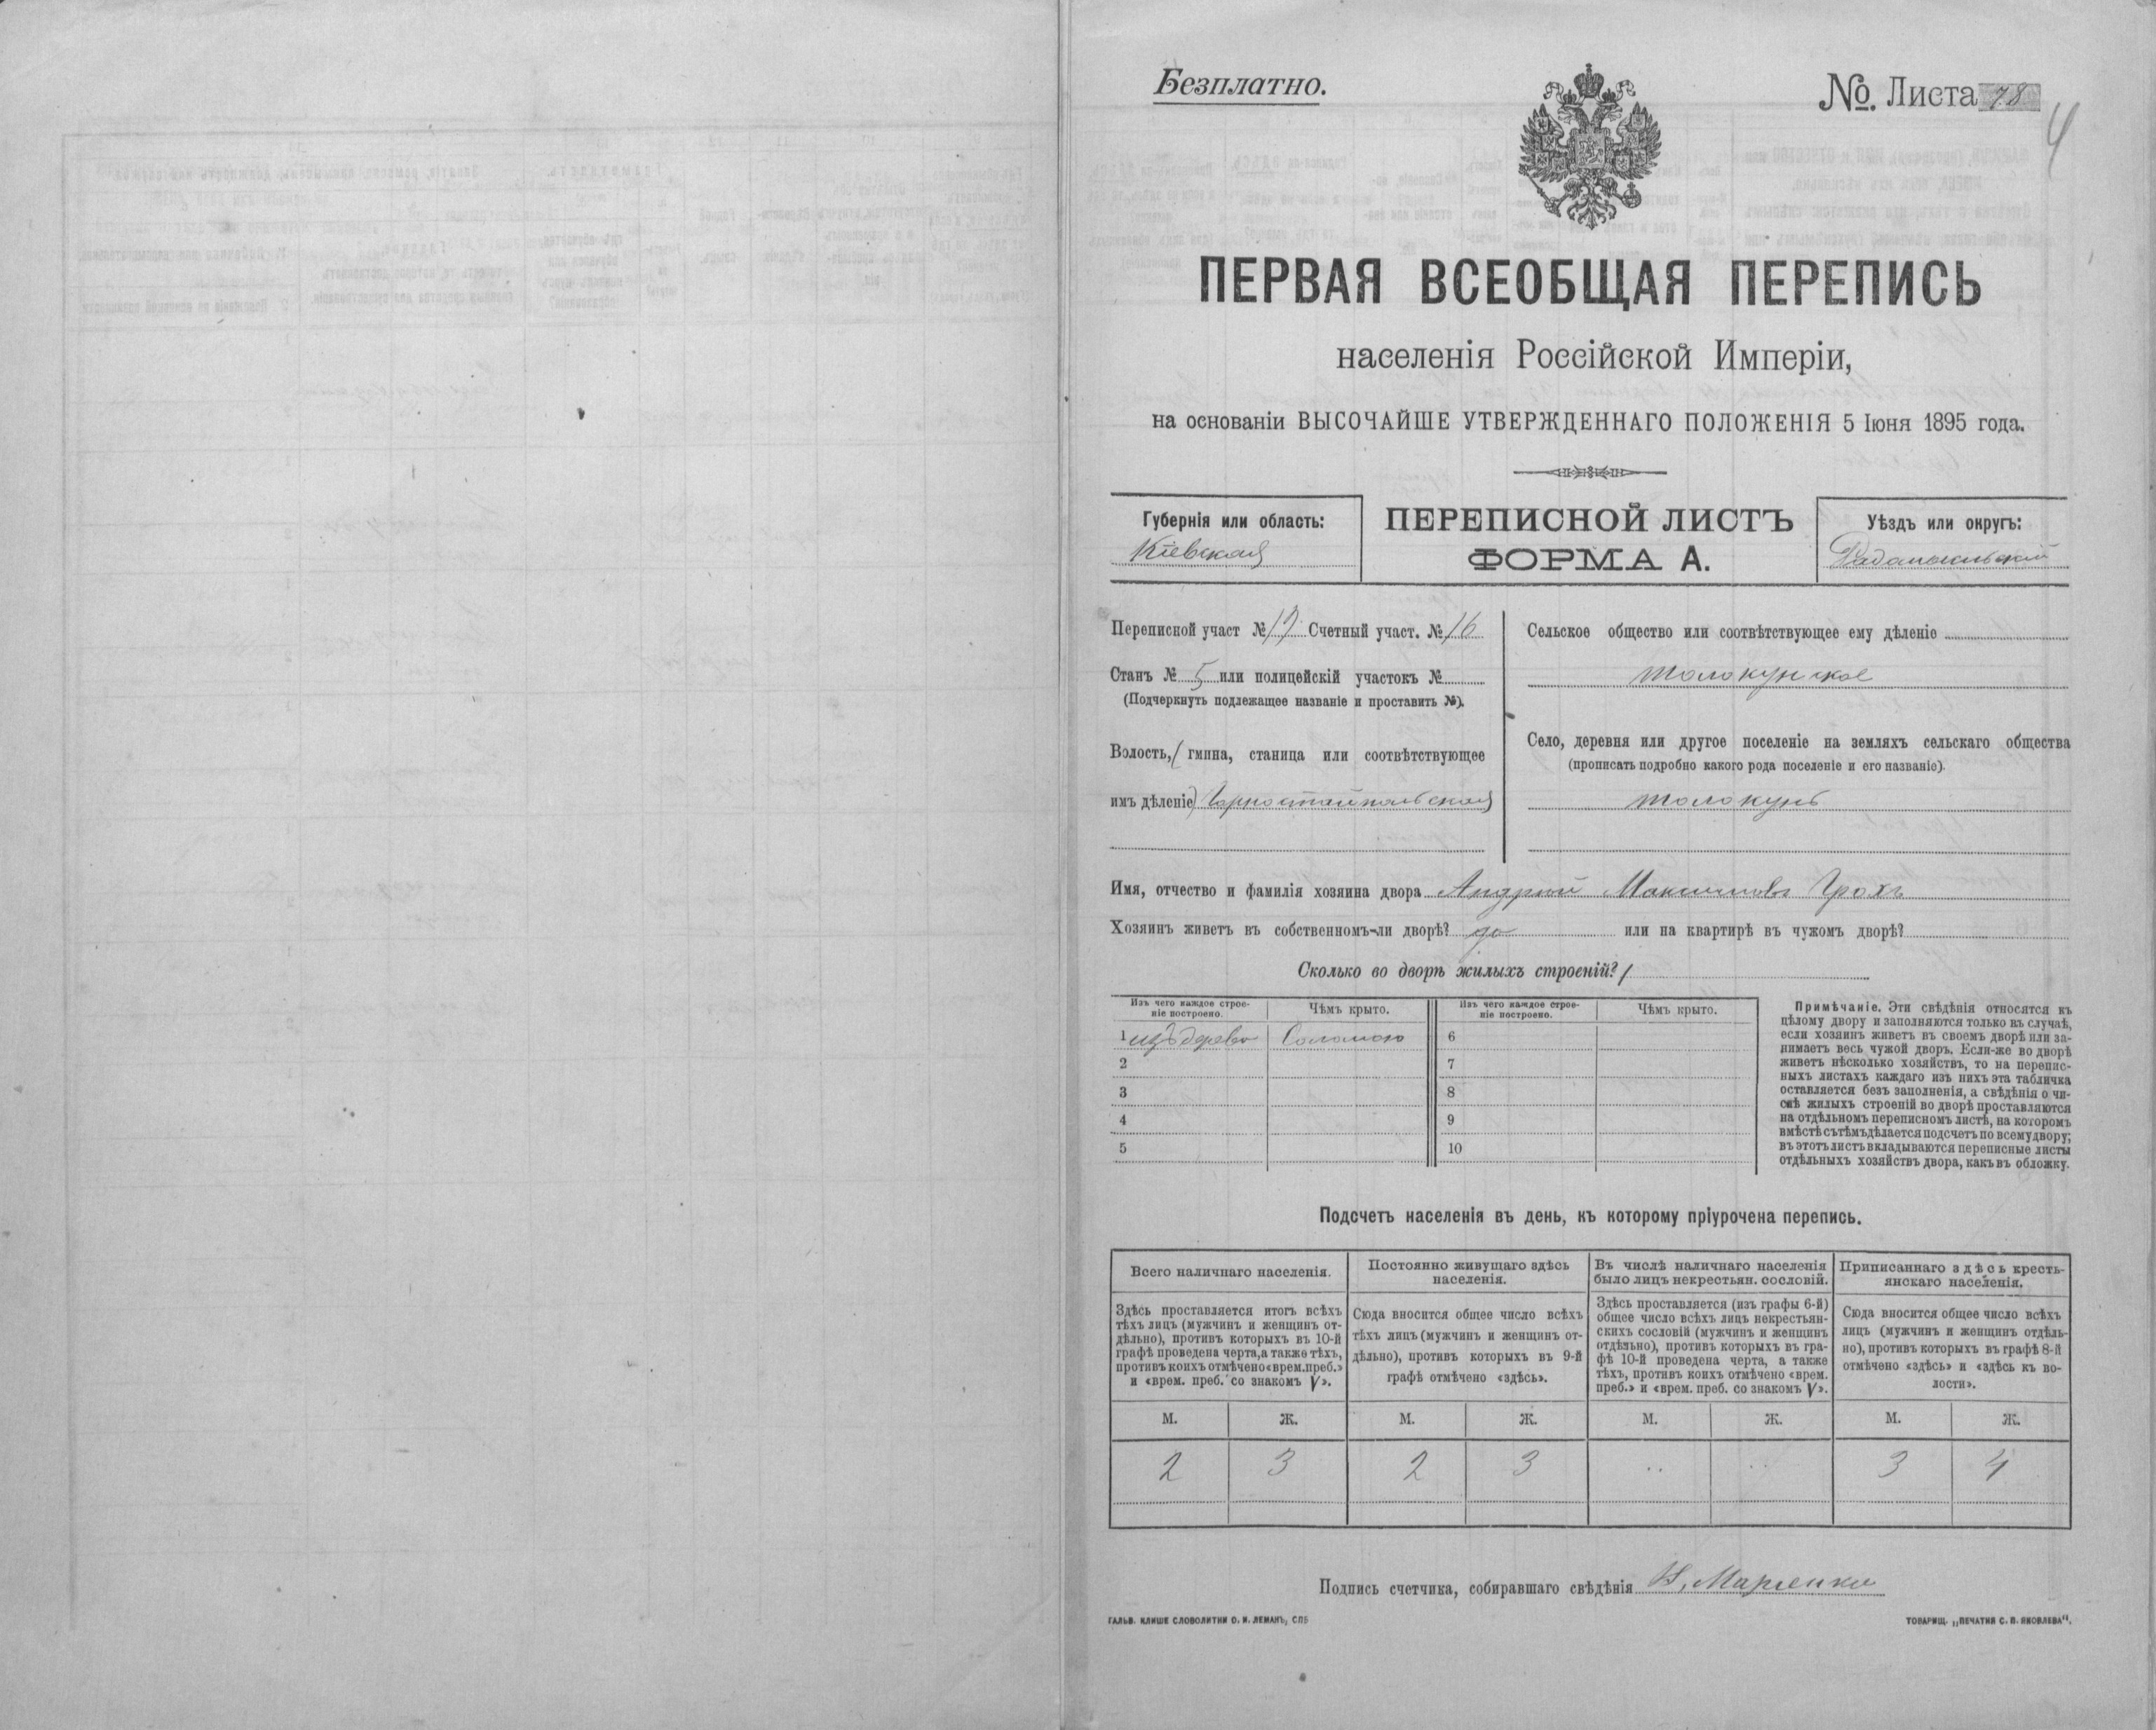 Безплатно.
№. Листа 78
4
ПЕРВАЯ ВСЕОБЩАЯ ПЕРЕПИСЬ
населенія Россійской Имперіи,
на основаніи ВЫСОЧАЙШЕ УТВЕРЖДЕННАГО ПОЛОЖЕНІЯ 5 Іюня 1895 года.
Губернія или область:
Кіевская
ПЕРЕПИСНОЙ ЛИСТЪ
ФОРМА А.
Уѣздъ или округъ:
Переписной участ № Счетный участ. № 16
Станъ № 5 или полицейскій участокъ №
(Подчеркнуть подлежащее названіе и проставить №).
Волость, (гмина, станица или соотвѣтствующее
имъ дѣленіе) Горностайпольская
Сельское общество или соотвѣтствующее ему дѣленіе
Толокунское
Село, деревня или другое поселеніе на земляхъ сельскаго общества
(прописать подробно какого рода поселеніе и его названіе).
Толокунь
Имя, отчество и фамилія хозяина двора Андрей Максимовъ Грохъ
Хозяинъ живетъ въ собственномъ-ли дворѣ? да или на квартирѣ въ чужомъ дворѣ?
Сколько во дворѣ жилыхъ строеній? 1
Изъ чего каждое строе-
ніе построено.
Чѣмъ крыто.
Изъ чего каждое строе-
ніе построено.
Чѣмъ крыто.
1 изъ дерева Соломою 6
2 7
3 8
4 9
5 10
Примѣчаніе. Эти свѣдѣнія относятся къ
цѣлому двору и заполняются только въ случаѣ,
если хозяинъ живетъ въ своемъ дворѣ или за-
нимаетъ весь чужой дворъ. Если-же во дворѣ
живетъ нѣсколько хозяйствъ, то на перепис-
ныхъ листахъ каждаго изъ нихъ эта табличка
оставляется безъ заполненія, а свѣдѣнія о чи-
слѣ жилыхъ строеній во дворѣ проставляются
на отдѣльномъ переписномъ листѣ, на которомъ
вмѣстѣ съ тѣмъ дѣлается подсчетъ по всему двору;
въ этотъ листъ вкладываются переписные листы
отдѣльныхъ хозяйствъ двора, какъ въ обложку.
Подсчетъ населенія въ день, къ которому пріурочена перепись.
Всего наличнаго населенія.
Здѣсь проставляется итогъ всѣхъ
тѣхъ лицъ (мужчинъ и женщинъ от-
дѣльно), противъ которыхъ въ 10-й
графѣ проведена черта, а также тѣхъ,
противъ коихъ отмѣчено «врем. преб.»
и «врем. преб. со знакомъ V».
Постоянно живущаго здѣсь
населенія.
Сюда вносится общее число всѣхъ
тѣхъ лицъ (мужчинъ и женщинъ от-
дѣльно), противъ которыхъ въ 9-й
графѣ отмѣчено «здѣсь».
Въ числѣ наличнаго населенія
было лицъ некрестьян. сословій.
Здѣсь проставляется (изъ графы 6-й)
общее число всѣхъ лицъ некрестьян-
скихъ сословій (мужчинъ и женщинъ
отдѣльно), противъ которыхъ въ гра-
фѣ 10-й проведена черта, а также
тѣхъ, противъ коихъ отмѣчено «врем.
преб.» и «врем. преб. со знакомъ V».
Приписаннаго здѣсь кресть-
янскаго населенія.
Сюда вносится общее число всѣхъ
лицъ (мужчинъ и женщинъ отдѣль-
но), противъ которыхъ въ графѣ 8-й
отмѣчено «здѣсь» и «здѣсь къ во-
лости».
М. Ж. М. Ж. М. Ж. М. Ж.
2 3 2 3 .. .. 3 4
Подпись счетчика, собиравшаго свѣдѣнія
ГАЛЬВ. КЛИШЕ СЛОВОЛИТНИ О. И. ЛЕМАНЪ, СПБ
ТОВАРИЩ. „ПЕЧАТНЯ С. П. ЯКОВЛЕВА".